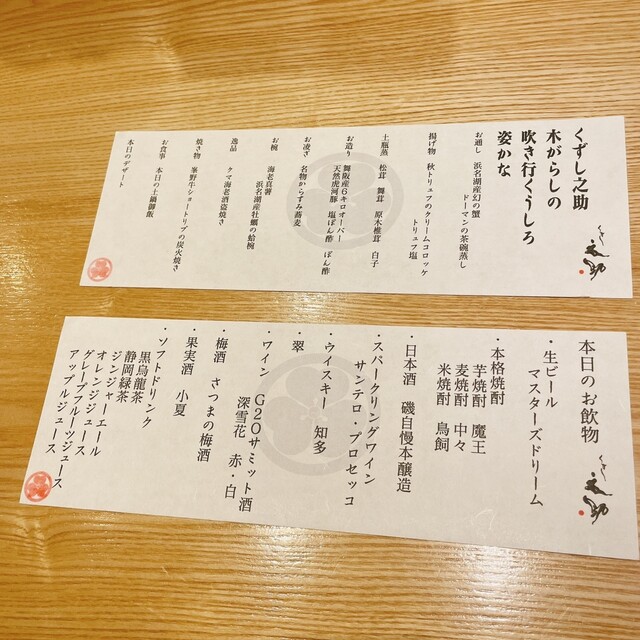 くずし之助
木がらしの
吹き行くうしろ
姿かな
くずし
之助
お通し 浜名湖産幻の蟹
ドーマンの茶碗蒸し
揚げ物 秋トリュフのクリームコロッケ
トリュフ塩
土瓶蒸 松茸 舞茸 原木椎茸 白子
お造り 舞阪産6キロオーバー
天然虎河豚 塩ぽん酢 ぽん酢
お凌ぎ 名物からすみ蕎麦
お椀 海老真薯
浜名湖産牡蠣の蛤椀
逸品 クマ海老酒盗焼き
焼き物 峯野牛ショートリブの炭火焼き
お食事 本日の土鍋御飯
本日のデザート
本日のお飲物
くずし
之助
・生ビール
マスターズドリーム
・本格焼酎
芋焼酎 魔王
麦焼酎 中々
米焼酎 鳥飼
・日本酒 磯自慢本醸造
・スパークリングワイン
サンテロ・プロセッコ
・ウイスキー 知多
・翠
・ワイン G20サミット酒
深雪花 赤・白
・梅酒 さつまの梅酒
・果実酒 小夏
・ソフトドリンク
黒烏龍茶
静岡緑茶
ジンジャーエール
オレンジジュース
グレープフルーツジュース
アップルジュース